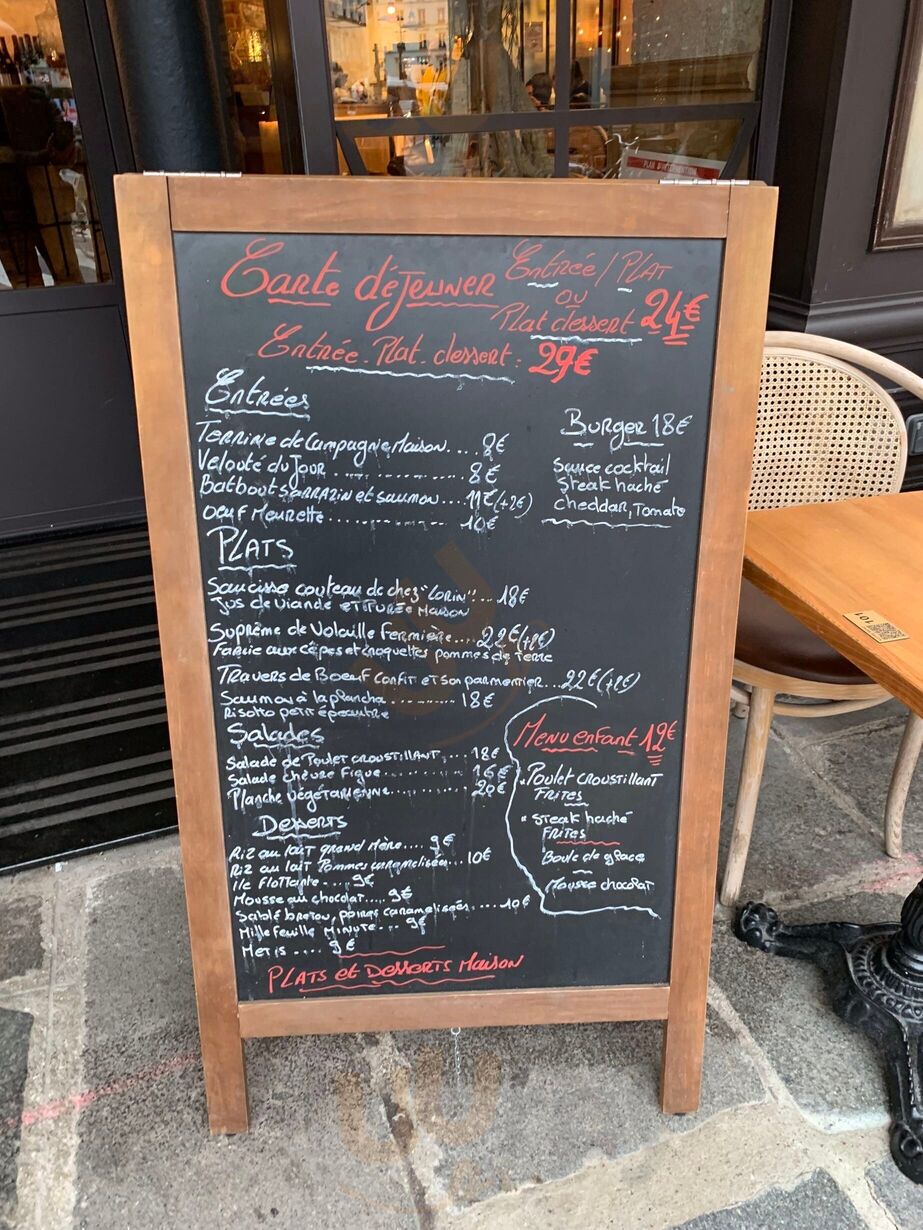 Carte déjeuner
Entrée / Plat
ou
Plat dessert 24€
Entrée - Plat - dessert : 29€
Entrées
Terrine de Campagne Maison.... 8€
Velouté du Jour ........... 8€
Batbout sarrazin et saumon.... 11€ (+2€)
Oeuf Meurette ........... 10€
Burger 18€
Sauce cocktail
Steak haché
Cheddar, Tomate
PLATS
Saucisse couteau de chez "CORIN"... 18€
Jus de Viande et PURÉE MAISON
Suprême de Volaille Fermière.... 22€ (+2€)
Farcie aux cèpes et croquettes pommes de Terre
Travers de Boeuf Confit et son parmentier... 22€ (+2€)
Saumon à la plancha ......... 18€
Risotto petit épeautre
Salades
Salade de Poulet croustillant .... 18€
Salade chèvre Figue .......... 16€
Planche végétarienne.......... 20€
Desserts
Riz au lait grand Mère.... 9€
Riz au lait Pommes caramelisées... 10€
ile Flottante .... 9€
Mousse au chocolat..... 9€
Sablé breton, poires caramelisées.... 10€
Mille feuille MINUTE... 9€
.... 9€
Menu enfant 12€
Poulet croustillant
Frites
Steak haché
Frites
Boule de glace
Mousse chocolat
PLATS et Desserts Maison
101